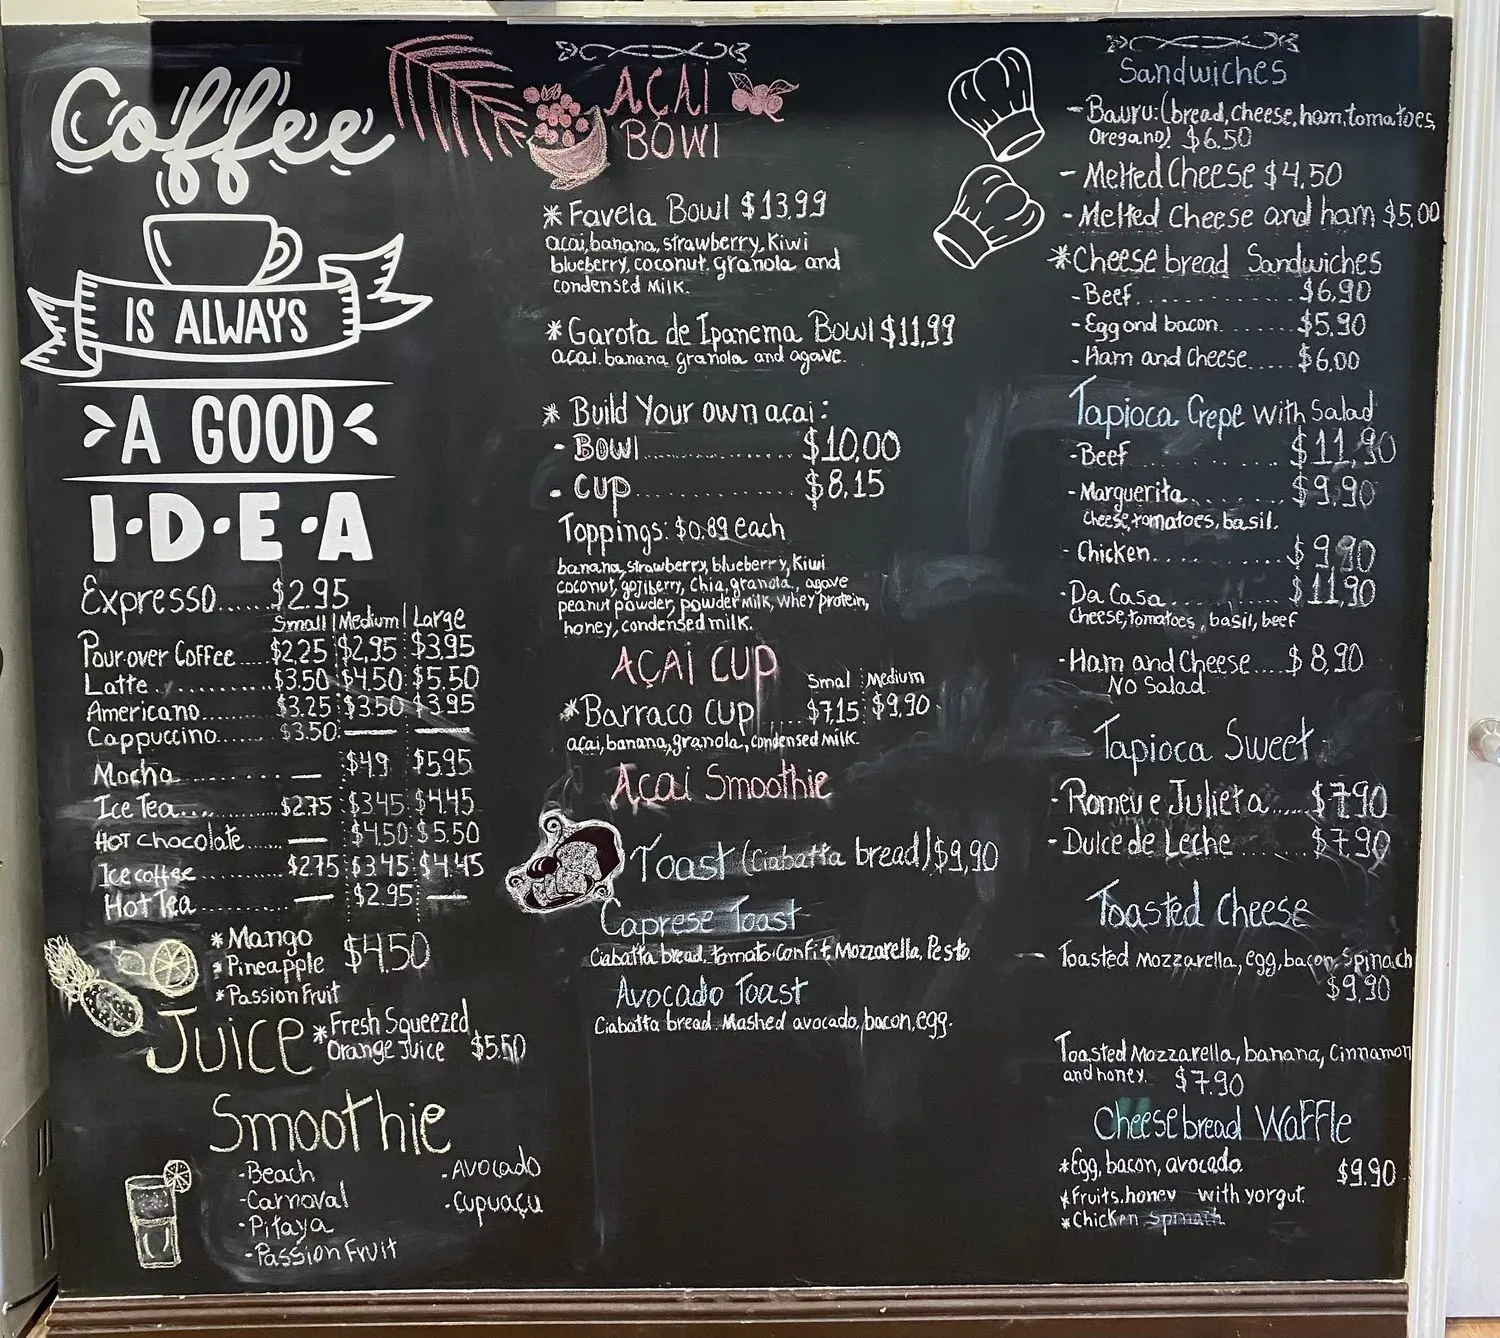 Coffee
IS ALWAYS
A GOOD
I·D·E·A
Expresso......$2.95
Small | Medium | Large
Pour over Coffee....$2,25 $2,95 $3.95
Latte...........$3.50 $4.50 $5.50
Americano.......$3.25 $3.50 $3.95
Cappuccino.....$3.50 — —
Mocha......... — $4.9 $5.95
Ice Tea............$2.75 $3.45 $4.45
HOT chocolate...... — $4.50 $5.50
Ice coffee............$2.75 $3.45 $4.45
Hot Tea............ — $2.95 —
*Mango
*Pineapple $4.50
*Passion Fruit
Juice
*Fresh Squeezed
Orange Juice $5.50
Smoothie
-Beach
-Carnaval
-Pitaya
-Passion Fruit
-Avocado
-Cupuaçu
AÇAI
BOWl
* Favela Bowl $13.99
açai, banana, strawberry, Kiwi
blueberry, coconut. granola and
condensed Milk.
* Garota de Ipanema Bowl $11,99
açai. banana, granola and agave.
* Build Your own açai:
- BOWl.................$10,00
- cup.................$8,15
Toppings: $0.89 each
banana, strawberry, blueberry, Kiwi
coconut, gojiberry, Chia, granola., agave
peanut powder, powder Milk, whey protein,
honey, condensed milk.
AÇAI CUP
Smal Medium
*Barraco cup......$7,15 $9,90
açai, banana, granola, condensed Milk.
Açai Smoothie
Toast (Ciabatta bread) $9,90
Caprese Toast
Ciabatta bread, tomato confit, Mozzarella, Pesto.
Avocado Toast
Ciabatta bread. Mashed avocado, bacon, egg.
Sandwiches
- Bauru: (bread, cheese, ham, tomatoes,
Oregano) $6.50
- Melted Cheese $4,50
- Melted Cheese and ham $5,00
*Cheese bread Sandwiches
-Beef.................$6,90
-Egg and bacon.......$5,90
-Ham and Cheese.....$6,00
Tapioca Crepe with Salad
-Beef.................$11,90
-Marguerita..........$9,90
Cheese, tomatoes, basil.
- Chicken............$9,90
-Da Casa............$11,90
Cheese, tomatoes, basil, beef
-Ham and Cheese....$8,90
NO Salad
Tapioca Sweet
-Romeu e Julieta.....$7,90
-Dulce de Leche.......$7,90
Toasted Cheese
- Toasted Mozzarella, egg, bacon, Spinach
$9,90
Toasted Mozzarella, banana, Cinnamon
and honey. $7.90
Cheesebread Waffle
*Egg, bacon, avocado. $9.90
*Fruits, honey with yorgut.
*Chicken spinach